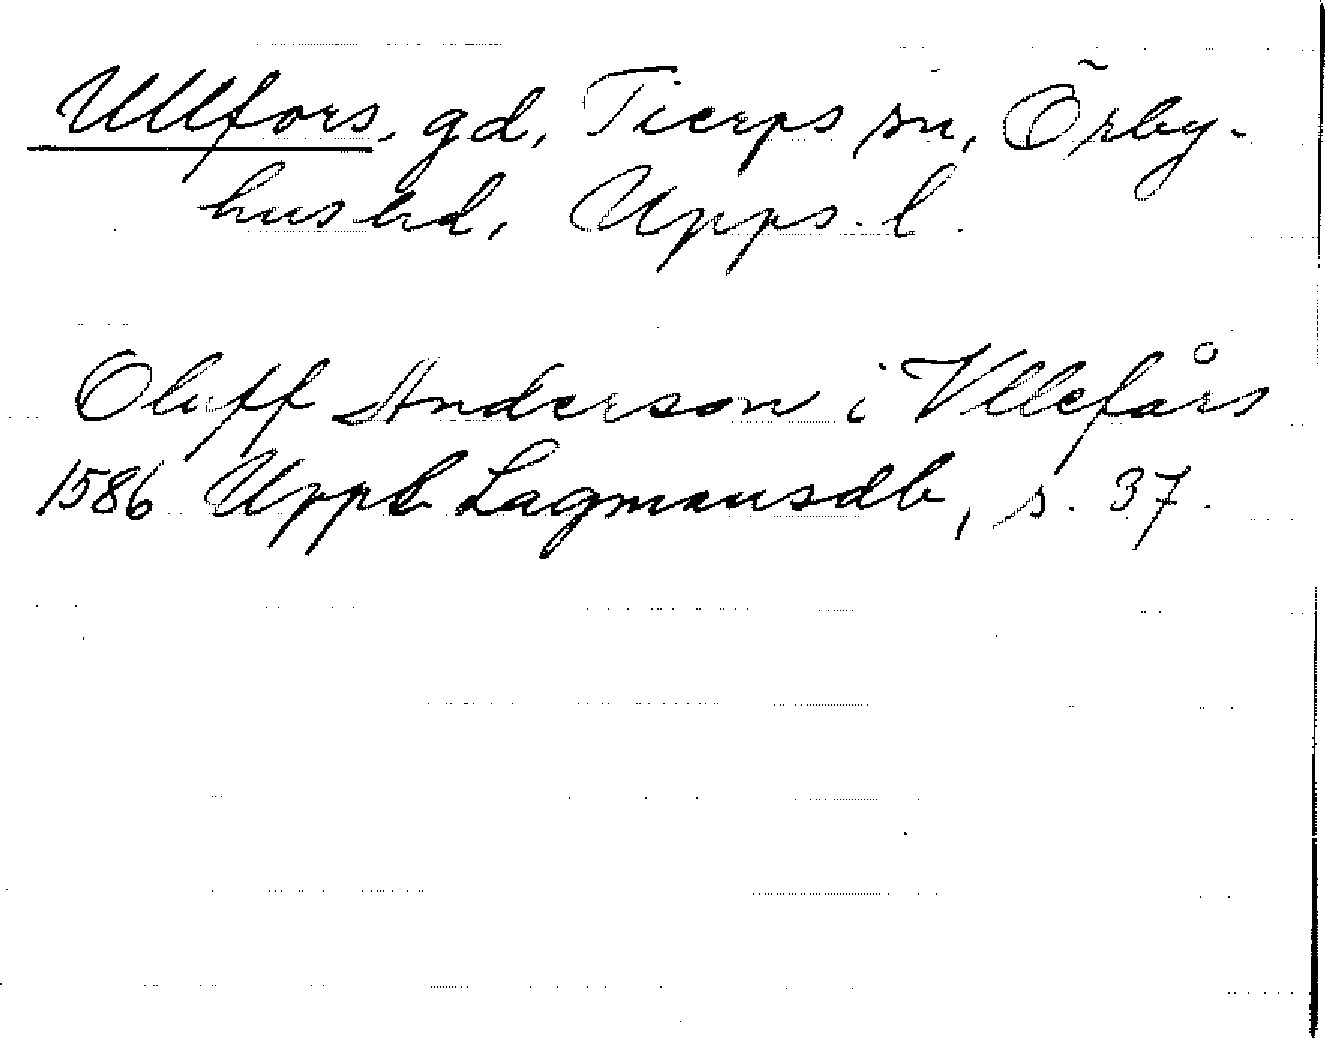 Ullfors, gd, Tierps sn, Örby-
hus hd, Upps. l.
Oluff Anderson i Vllefårs
1586 Uppl Lagmansdb, s. 37.